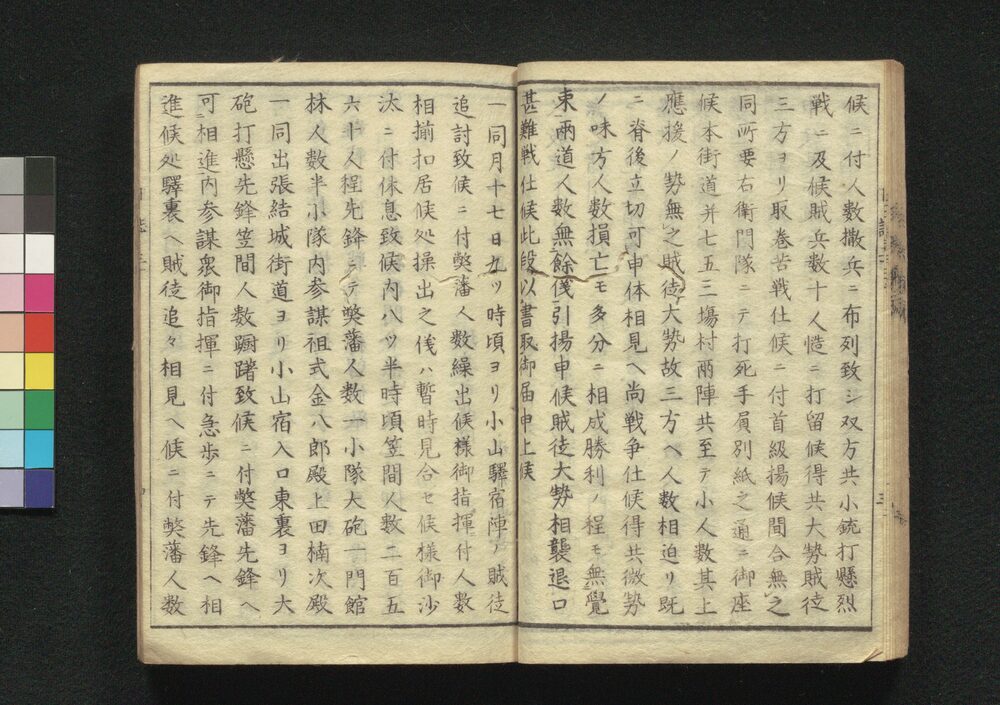 候ニ付人数撒兵ニ布列致シ双方共小銃打懸烈
戦ニ及候賊兵数十人慥ニ打留候得共大勢賊徒
三方ヨリ取巻苦戦仕候ニ付首級揚候間合無之
同所要右衛門隊ニテ打死手負別紙之通ニ御座
候本街道并七五三場村両陣共至テ小人数其上
應援ノ勢無之賊徒大勢故三方ヘ人数相迫リ既
ニ脊後立切可申体相見ヘ尚戦争仕候得共微勢
ノ味方人数損亡モ多分ニ相成勝利ノ程モ無覺
束両道人数無餘儀引揚申候賊徒大勢相襲退口
甚難戦仕候此段以書取御届申上候
一同月十七日九ツ時頃ヨリ小山驛宿陣ノ賊徒
追討致候ニ付獘藩人数繰出候様御指揮付人数
相揃扣居候処操出之儀ハ暫時見合セ候様御沙
汰ニ付休息致候内八ツ半時頃笠間人数二百五
六十人程先鋒ニテ獘藩人数一小隊大砲一門館
林人数半小隊内参謀祖式金八郎殿上田楠次殿
一同出張結城街道ヨリ小山宿入口東裏ヨリ大
砲打懸先鋒笠間人数躕躇致候ニ付獘藩先鋒ヘ
可相進内参謀衆御指揮ニ付急歩ニテ先鋒ヘ相
進候処驛裏ヘ賊徒追々相見ヘ候ニ付獘藩人数
三